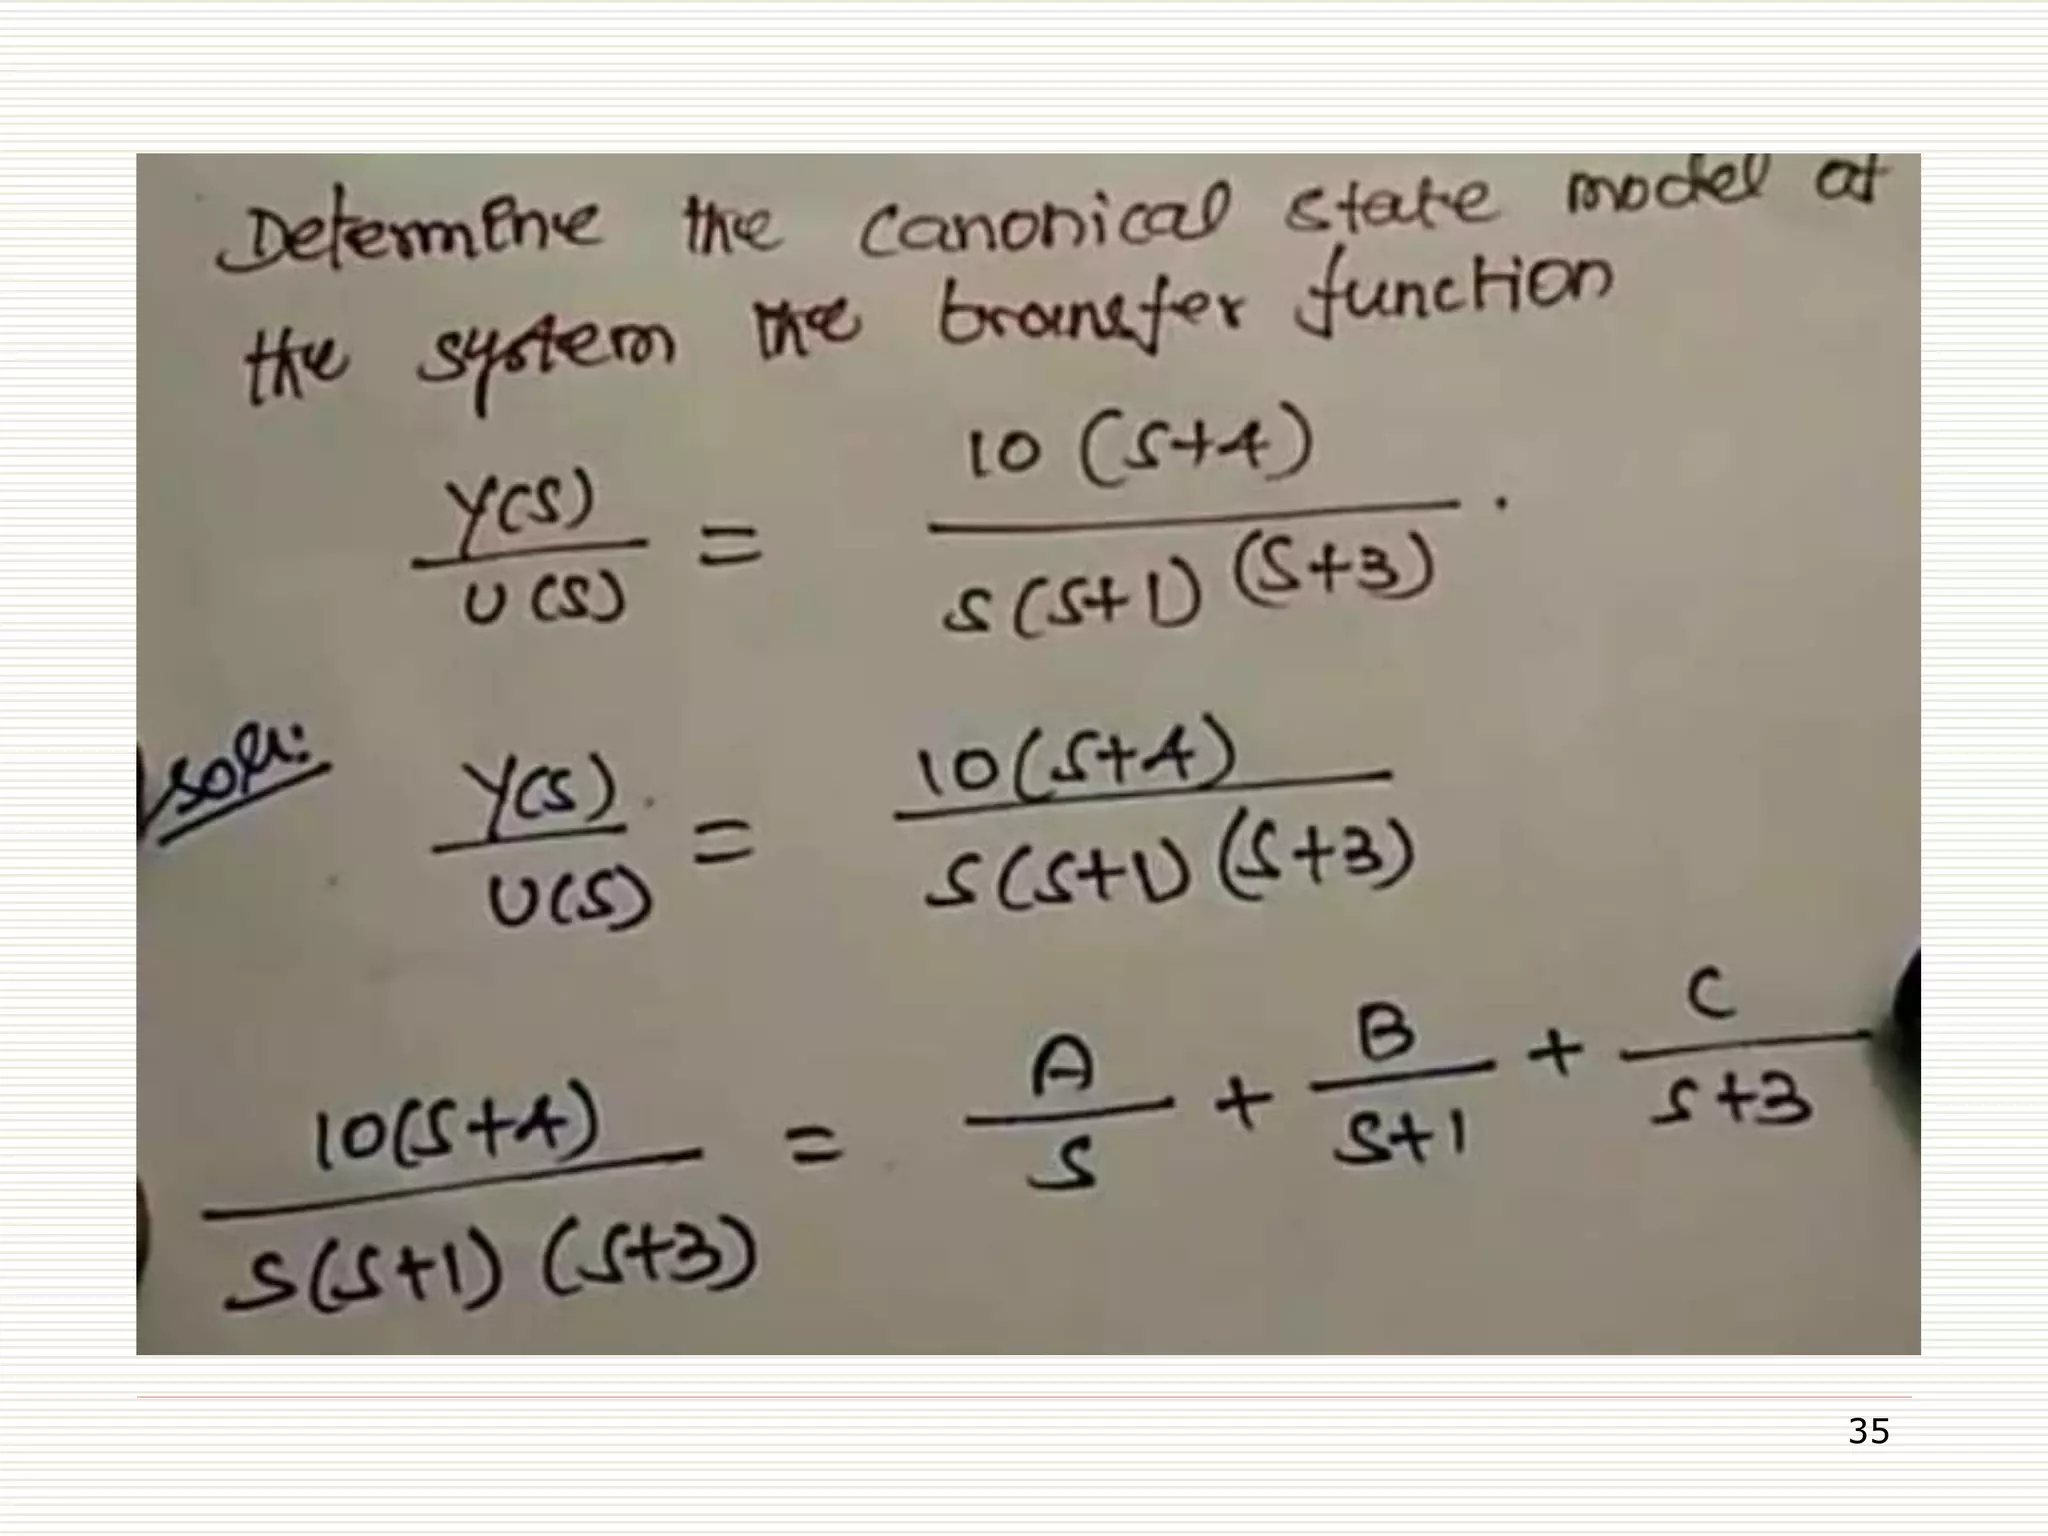 Determine the canonical state model at
the system the transfer function
Y(s)/U(s) = 10 (s+4) / s(s+1) (s+3) .
soln:
Y(s)/U(s) = 10(s+4) / s(s+1) (s+3)
10(s+4) / s(s+1) (s+3) = A/s + B/s+1 + C/s+3
35